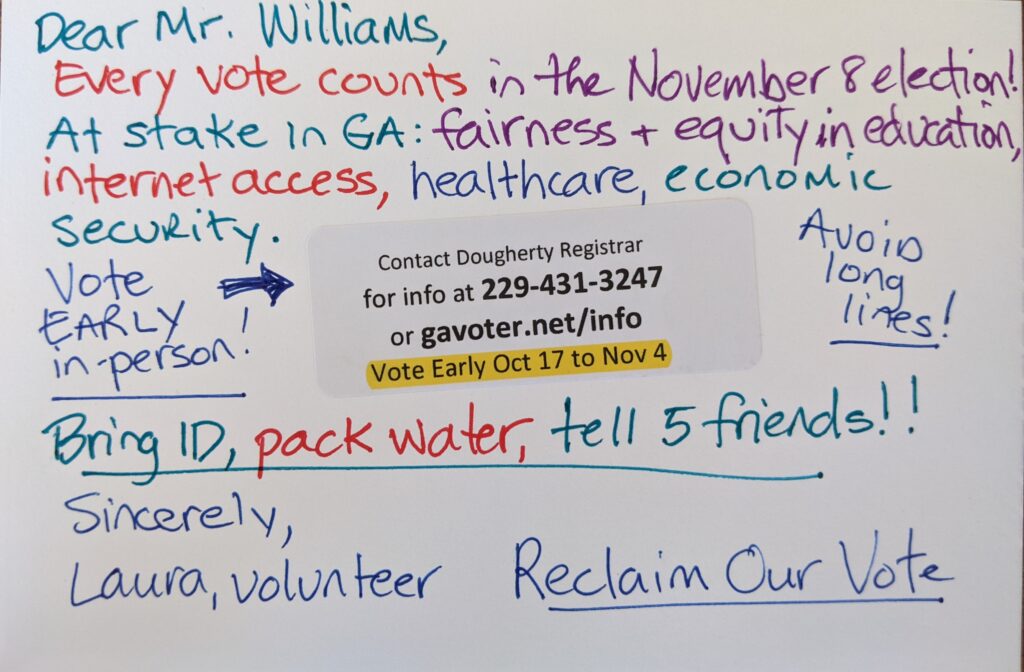 Dear Mr. Williams,
Every vote counts in the November 8 election!
At stake in GA: fairness + equity in education,
internet access, healthcare, economic
security.
Vote
EARLY
in-person!
Contact Dougherty Registrar
for info at 229-431-3247
or gavoter.net/info
Vote Early Oct 17 to Nov 4
Avoid
long
lines!
Bring ID, pack water, tell 5 friends!!
Sincerely,
Laura, volunteer
Reclaim Our Vote